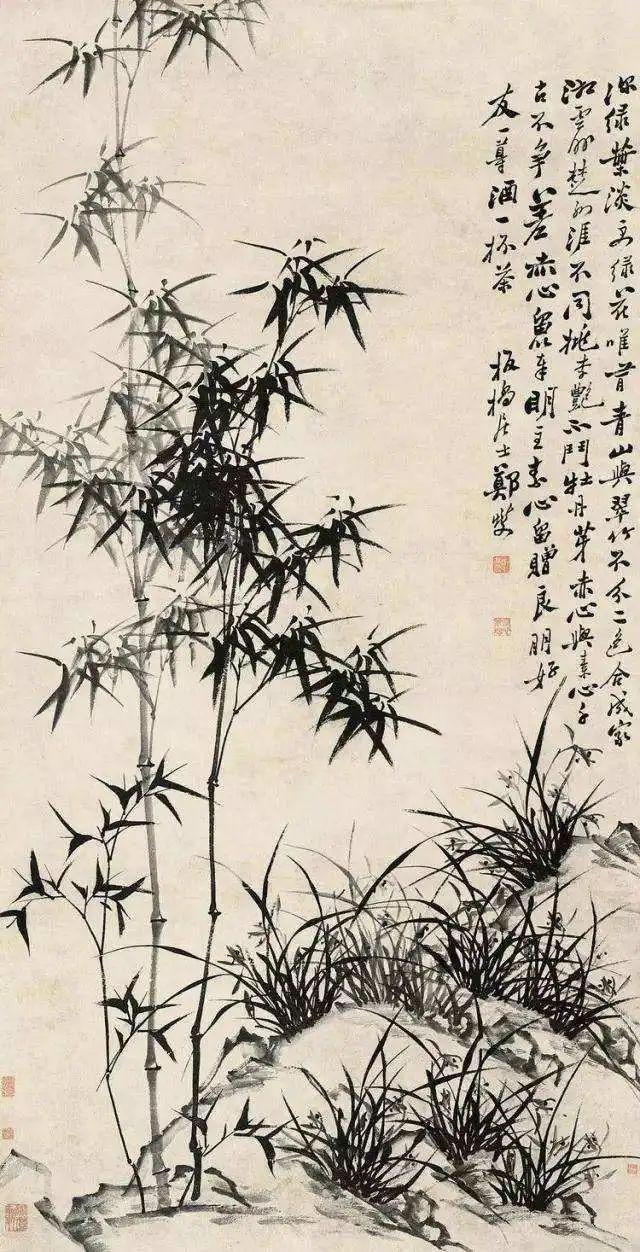 深绿葉淡綠花唯青山與翠竹不分二色合成家
湘雲楚涯不同桃李艷不鬥牡丹芽赤心與素心千
古不爭差赤心留奉明主素心留贈良朋好
友一尊酒一杯茶 板橋居士鄭燮